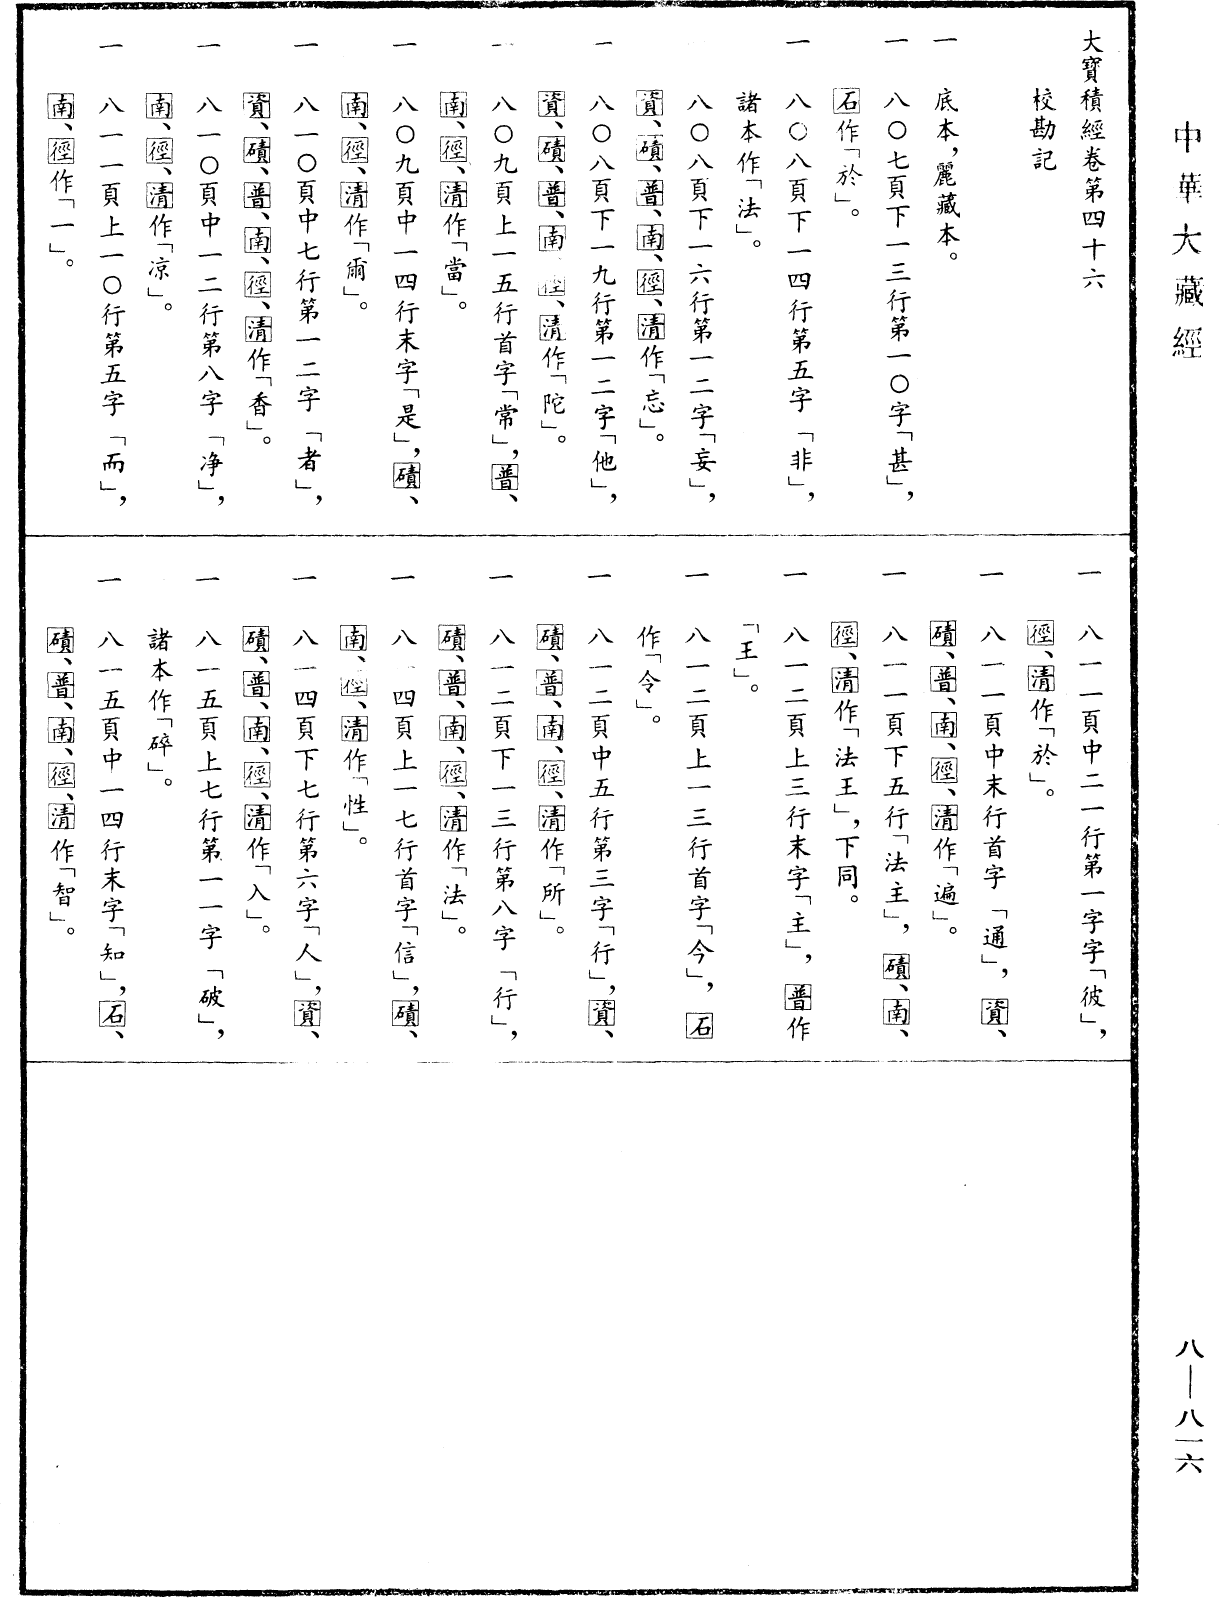 中華大藏經
大寶積經卷第四十六
校勘記
一 底本，麗藏本。
一 八〇七頁下一三行第一〇字「甚」，
石作「於」。
一 八〇八頁下一四行第五字「非」，
諸本作「法」。
八〇八頁下一六行第一二字「妄」，
資、磧、普、南、徑、清作「忘」。
一 八〇八頁下一九行第一二字「他」，
資、磧、普、南、徑、清作「陀」。
一 八〇九頁上一五行首字「常」，普、
南、徑、清作「當」。
一 八〇九頁中一四行末字「是」，磧、
南、徑、清作「爾」。
一 八一〇頁中七行第一二字「者」，
資、磧、普、南、徑、清作「香」。
一 八一〇頁中一二行第八字「淨」，
南、徑、清作「凉」。
一 八一一頁上一〇行第五字「而」，
南、徑作「一」。
一 八一一頁中二一行第一字字「彼」，
徑、清作「於」。
一 八一一頁中末行首字「通」，資、
磧、普、南、徑、清作「遍」。
一 八一一頁下五行「法主」，磧、南、
徑、清作「法王」，下同。
一 八一二頁上三行末字「主」，普作
「王」。
一 八一二頁上一三行首字「今」，石
作「令」。
一 八一二頁中五行第三字「行」，資、
磧、普、南、徑、清作「所」。
一 八一二頁下一三行第八字「行」，
磧、普、南、徑、清作「法」。
一 八一四頁上一七行首字「信」，磧、
南、徑、清作「性」。
一 八一四頁下七行第六字「人」，資、
磧、普、南、徑、清作「入」。
一 八一五頁上七行第一一字「破」，
諸本作「碎」。
一 八一五頁中一四行末字「知」，石、
磧、普、南、徑、清作「智」。
八—八一六